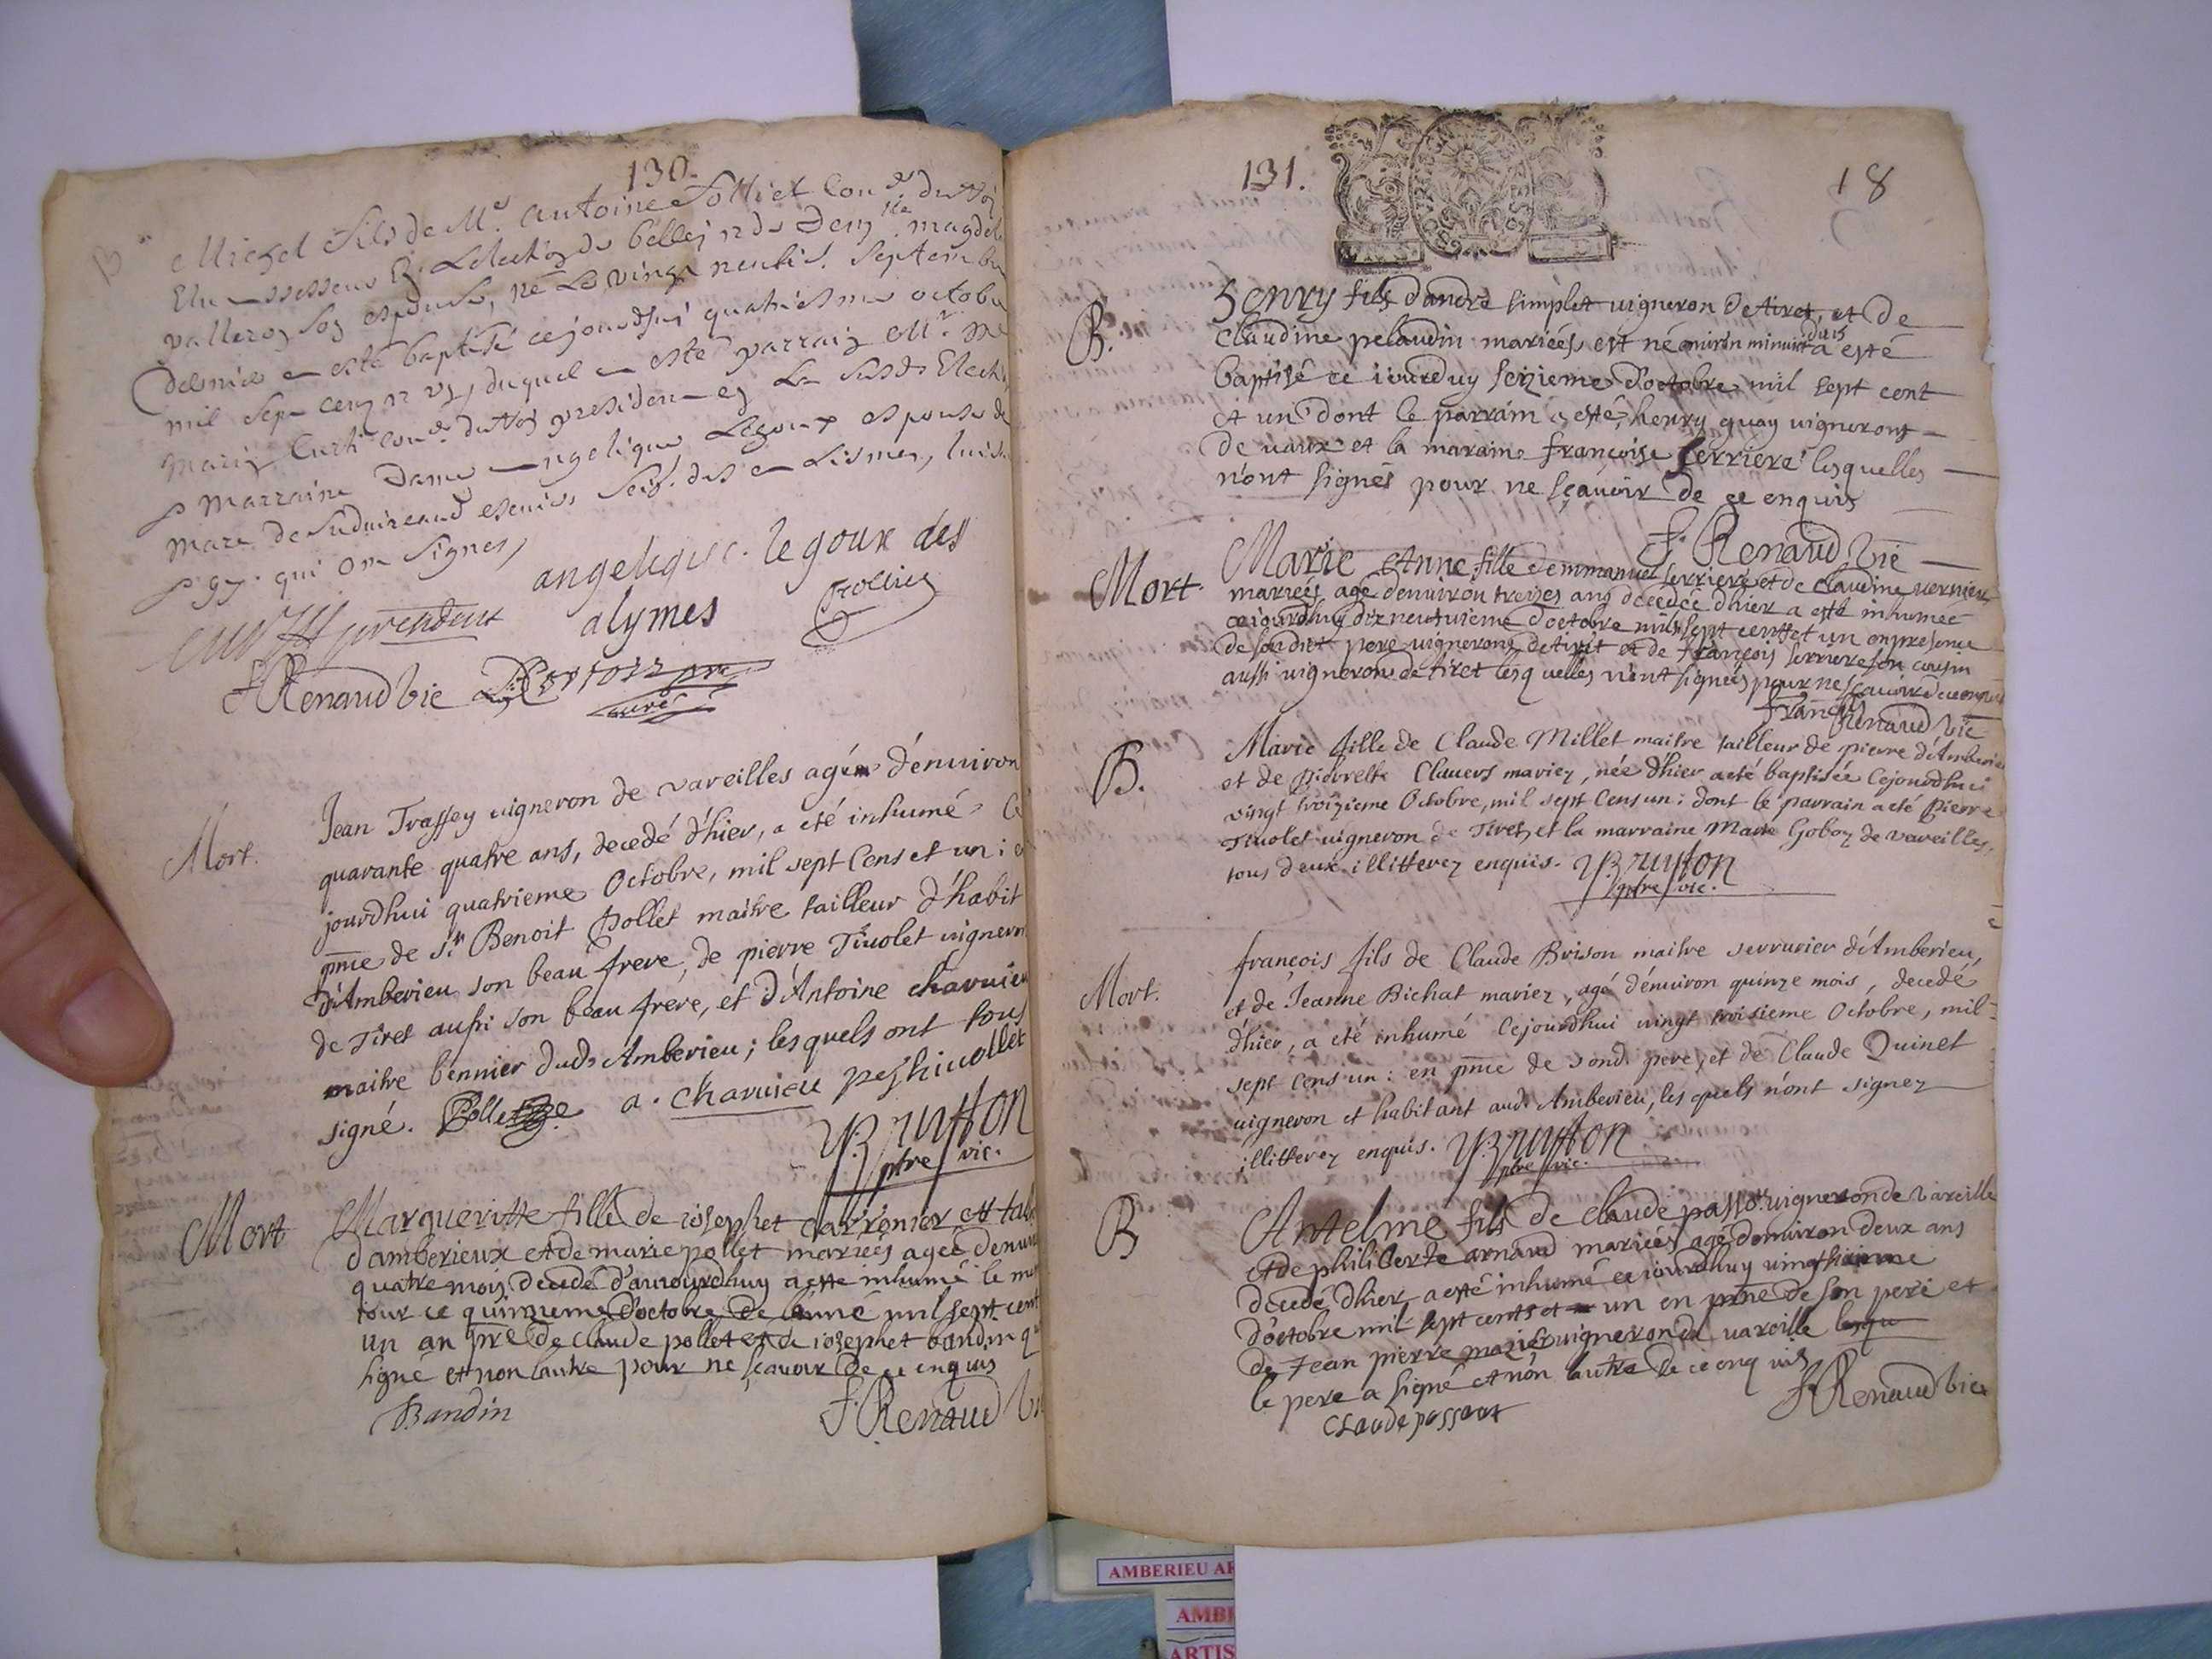 130.
B
Michel fils de Mr. Antoine Folliet Conr. du Roy
Elu assesseur En Lelection de Belley & de Demlle magdel
valleroz son espouse, né Le vingt neufie. Septembre
dernier a esté baptisé cejourdhui quatriesme octobre
mil sept cens & un, duquel a esté parrain Mr.
Marin Conr. du Roy president en La susd. Election
& Marraine Dame angelique Legoux espouse de
Marc de Suduireaud escuier seig. des
qui ont signes,
president
angelique. le goux des
alymes
Folliet
F Renaud vic
curé
Mort.
Jean Trassey vigneron de vareilles agé d'énuiron
quarante quatre ans, decedé d'hier, a eté inhumé Ce
jourdhui quatrieme Octobre, mil sept Cens et un : en
pnce de Sr. Benoit Pollet maitre tailleur d'habit
d'Amberieu son beau frere, de pierre Tiuolet uigneron
de Tiret aussi son beau frere, et d'Antoine charuieu
maitre bennier dud. Amberieu ; lesquels ont tous
signé. Pollet a. charuieu p thiuollet
Bruyson
ptre vic.
Mort
Margueritte fille de iosephet carronier et
d'amberieux et de marie pollet mariées agée denuiron
quatre mois decedé d'auiourdhuy a esté inhumé le mesme
iour ce quinzieme d'octobre de lanné mil sept cent
un an pre de claude pollet et de iosephet bandin qui
signé et non lautre pour ne scauoir de ce enquis
Bandin
F. Renaud
131.
18
B.
Henry fils d'andré simplet uigneron de tiret, et de
claudine pelaudin mariées est né enuiron minuit a esté
baptisé ce iourduy sezieme d'octobre mil sept cent
et un dont le parrain a esté henry quay uigneront
de vaux et la maraine françoise ferriere lesquelles
n'ont signés pour ne sçauoir de ce enquis
F. Renaud vic
Mort.
Marie Anne fille d'emmanuel ferriere et de claudine vernier
mariées agé denuiron treizes ans decedée dhier a esté inhumée
ceiourdhuy dix neufuieme d'octobre mil sept cent et un en presence
de son dict pere uigneront de tiret et de françois ferriere son cousin
aussi uigneron de tiret lesquelles n'ont signées pour ne scauoir de ce enquis
françois
Renaud vic
B.
Marie fille de Claude Millet maitre tailleur de pierre d'Amberieu
et de Pierrette Clauers mariez, née d'hier a eté baptisée Cejourdhui
vingt troizieme Octobre, mil sept Cens un : dont le parrain a eté Pierre
Tiuolet uigneron de Tiret, et la marraine Marie Goboz de vareilles,
tous deux illitterez enquis. Bruyson
ptre vic.
Mort.
françois fils de Claude Brison maitre serrurier d'Amberieu,
et de Jeanne Bichat mariez, agé d'énuiron quinze mois, decedé
d'hier, a eté inhumé Cejourdhui uingt troisieme Octobre, mil
sept Cens un : en pnce de sond. pere, et de Claude Quinet
uigneron et habitant aud. Amberieu, les quels n'ont signez
illitterez enquis. Bruyson
ptre vic.
B
Antelme fils de claude passot uigneron de vareille
et de philiberte arnaud mariées agé denuiron deux ans
decedé dhier a esté inhumé ce iourdhuy
d'octobre mil sept cents et un en pnce de son pere et
de Jean pierre uigneron de vareille lesqu
le pere a signé et non lautre de ce enquis
Claude passaut
F Renaud vic
AMBERIEU AR
AMBE
ARTIS